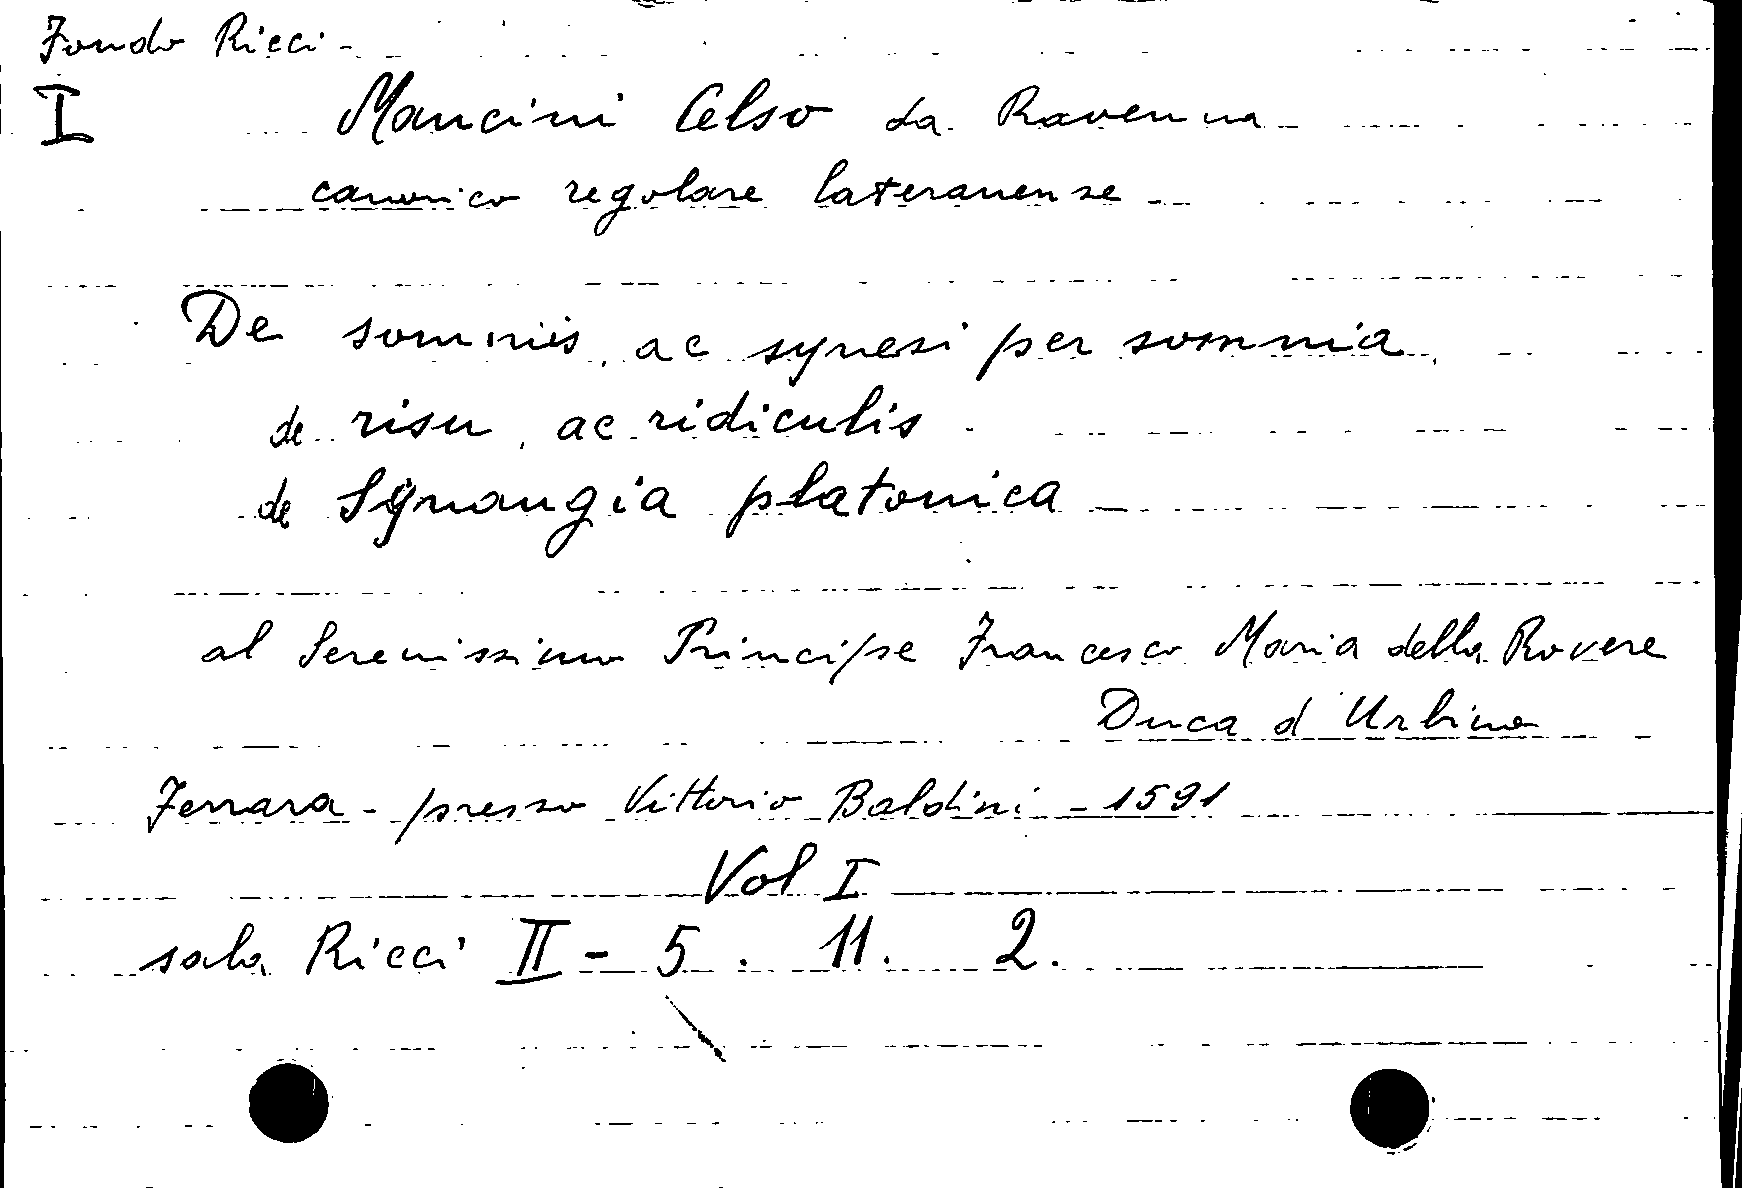 Fondo Ricci -
I
Mancini Celso da Ravenna
canonico regolare lateranense
De somniis, ac synesi per somnia,
de risu, ac ridiculis
de Synaugia platonica
al Serenissimo Principe Francesco Maria della Rovere
Duca d'Urbino
Ferrara - presso Vittorio Baldini - 1591
Vol I
sala Ricci II - 5 . 11. 2.